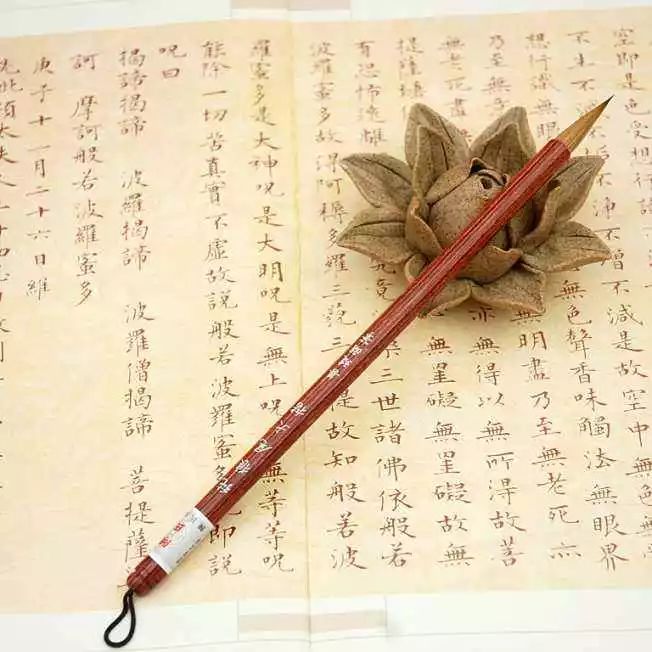 空即是色受想行
不生不不垢不淨不增不減是故空中無色無
想行識無眼無色聲香味觸法無眼界
乃至無無明盡乃至無老死亦
無老死盡亦無得以無所得故菩
提薩埵無罣礙無罣礙故無
有恐怖遠離究三世諸佛依般若
波羅蜜多故得阿耨多羅三藐三提故知般若波
羅蜜多是大神呪是大明呪是無上呪無等等呪
能除一切苦真實不虛故說般若波羅蜜多即說
呪曰
揭諦揭諦 波羅揭諦 波羅僧揭諦 菩提薩
訶 摩訶般若波羅蜜多
庚子十一月二十六日維